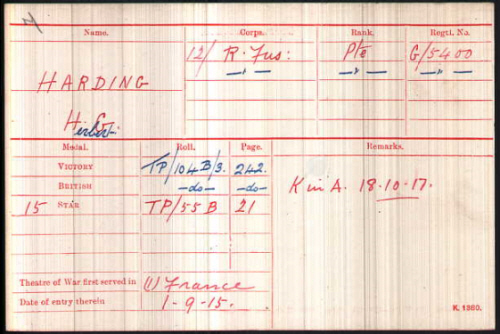 Name. Corps. Rank. Regtl. No.
12/ R. Fus: Pte G/5400
HARDING —„— —„— —„—
Herbert
Medal. Roll. Page. Remarks.
VICTORY TP/104B/3. 242.
BRITISH —do— —do—
K in A. 18.10.17.
15 STAR TP/55B 21
Theatre of War first served in (1) France
Date of entry therein 1-9-15.
K. 1380.